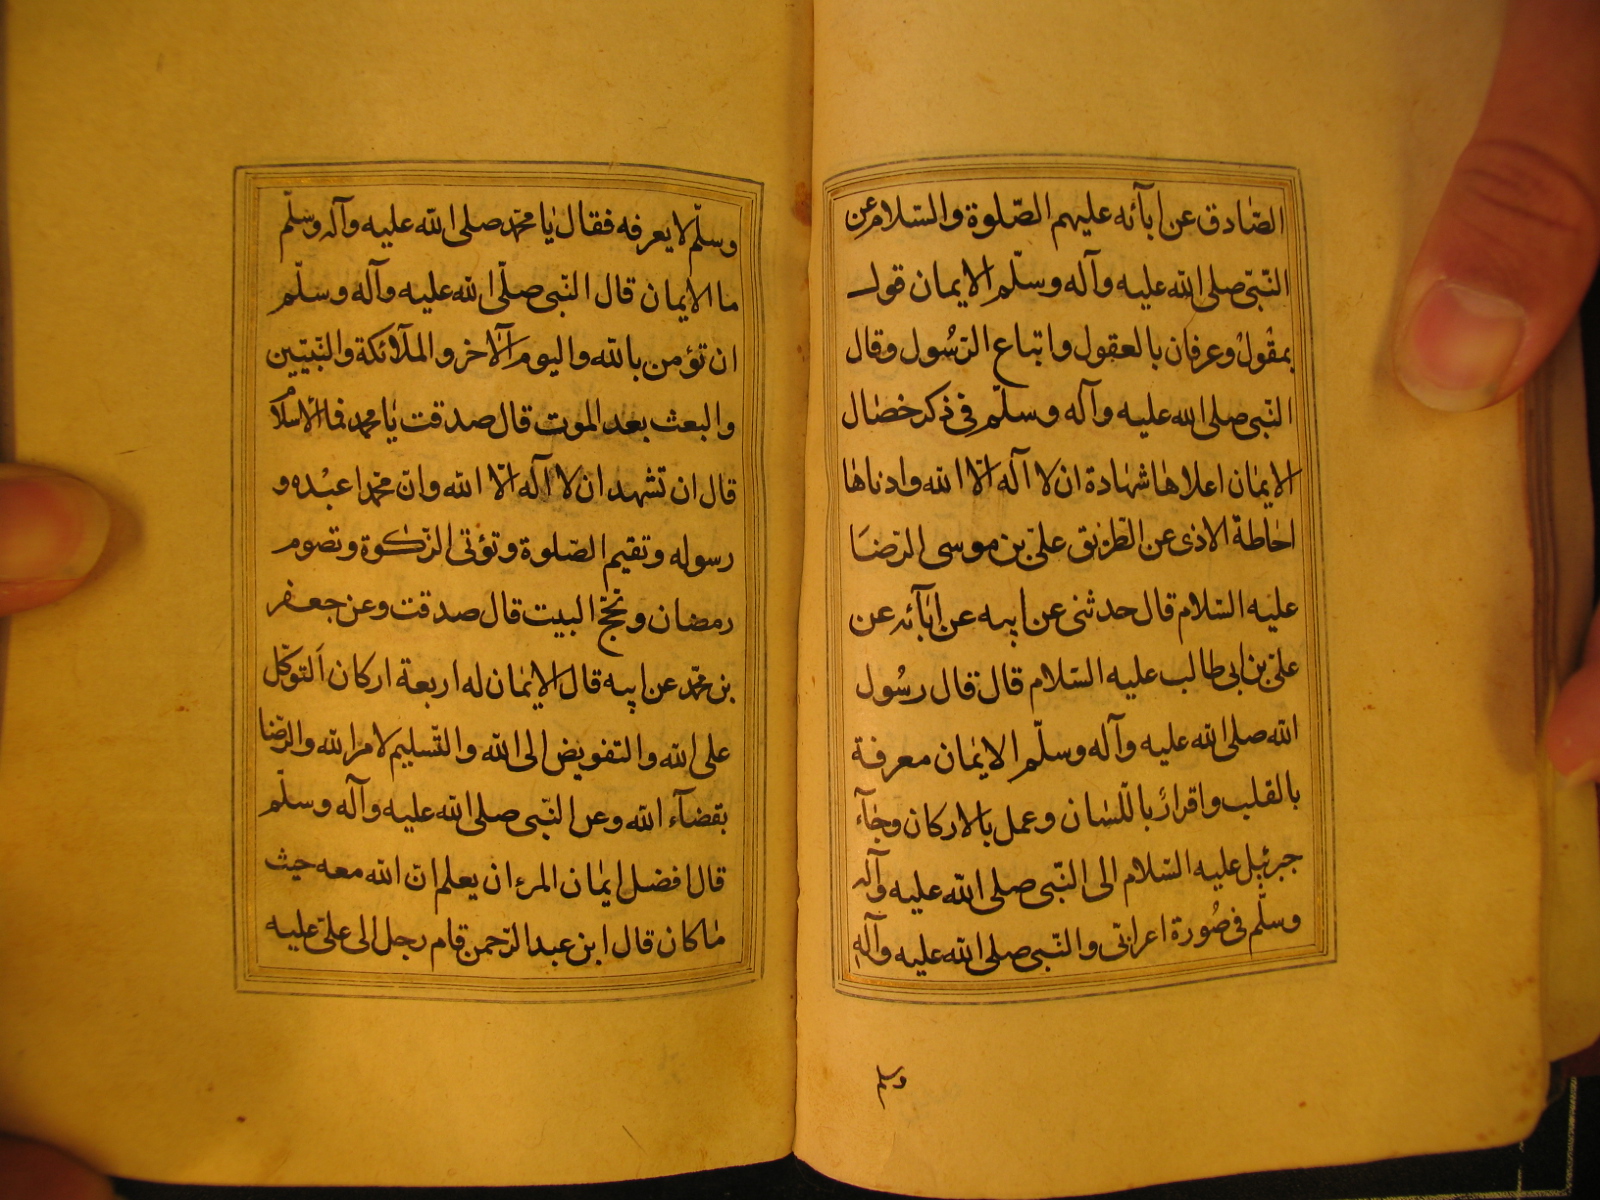 الصّادق عن اٰبآئه عليهم الصّلوة والسّلام عن
النّبى صلى اللّه عليه وآله وسلّم الايمان قول
بمقول وعرفان بالعقول واتباع الرّسُول وقال
النّبى صلى اللّه عليه وآله وسلّم فى ذكر خصال
الايمان اعلاها شهادة ان لا آله الّا اللّه وادناها
احاطة الاذى عن الطّريق علىّ بن موسى الرّضا
عليه السّلام قال حدثنى عن ابيه عن اٰبآئه عن
علىّ بن ابى طالب عليه السّلام قال قال رسُول
اللّه صلى اللّه عليه وآله وسلّم الايمان معرفة
بالقلب واقرار باللّسان وعمل بالاركان وجآء
جبرئيل عليه السّلام الى النّبى صلى اللّه عليه وآله
وسلّم فى صُورة اعرابّى والنّبى صلى اللّه عليه وآله
وسلم
وسلّم لا يعرفه فقال يا محمّد صلى اللّه عليه وآله وسلّم
ما الايمان قال النّبى صلّى اللّه عليه وآله وسلّم
ان تؤمن باللّه واليوم الآخر والملآئكة والنّبيّين
والبعث بعد الموت قال صدقت يا محمد فما الاسلام
قال ان تشهد ان لا آله الّا اللّه وانّ محمّدا عبْده و
رسوله وتقيم الصّلوة وتؤتى الزّكوة وتصوم
رمضان وتحجّ البيت قال صدقت وعن جعفر
بن محمّد عن ابيه قال الايمان له اربعة اركان اَلتوكّل
على اللّه والتفويض الى اللّه والتّسليم لامر اللّه والرّضا
بقضآء اللّه وعن النّبى صلى اللّه عليه وآله وسلّم
قال افضل ايمان المرء ان يعلم انّ اللّه معه حيث
ما كان قال ابن عبد الرّحمن قام رجل الى علىّ عليه